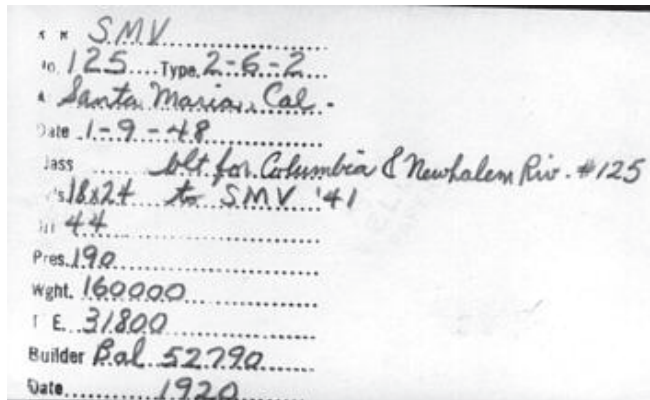 R R SMV
No. 125 Type 2-6-2
At Santa Maria, Cal.
Date 1-9-48
Class blt for Columbia & Newhalem Riv. #125
18x24 to SMV '41
44
Pres. 190
Wght. 160000
T E. 31800
Builder Bal 52790
Date 1920